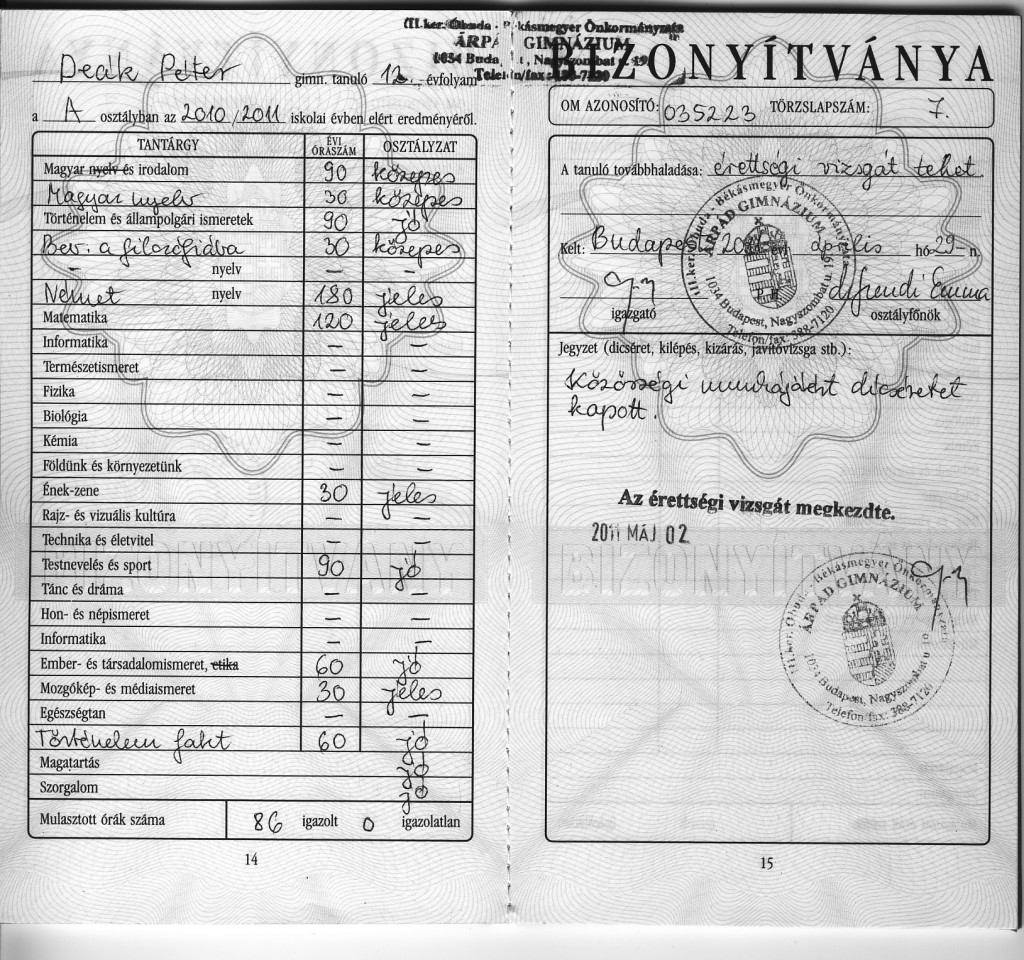 III.ker. Óbuda - Békásmegyer Önkormányzata
ÁRPÁD GIMNÁZIUM
1034 Budapest, Nagyszombat u. 19.
Telefon/fax: 388-7120
Deák Péter gimn. tanuló 12. évfolyam
a A osztályban az 2010/2011 iskolai évben elért eredményéről.
TANTÁRGY ÉVI ÓRASZÁM OSZTÁLYZAT
Magyar nyelv és irodalom 90 közepes
Magyar nyelv 30 közepes
Történelem és állampolgári ismeretek 90 jó
Bev. a filozófiába 30 közepes
– nyelv – –
Német nyelv 180 jeles
Matematika 120 jeles
Informatika – –
Természetismeret – –
Fizika – –
Biológia – –
Kémia – –
Földünk és környezetünk – –
Ének-zene 30 jeles
Rajz- és vizuális kultúra – –
Technika és életvitel – –
Testnevelés és sport 90 jó
Tánc és dráma – –
Hon- és népismeret – –
Informatika – –
Ember- és társadalomismeret, etika 60 jó
Mozgókép- és médiaismeret 30 jeles
Egészségtan – –
Történelem fakt 60 jó
Magatartás jó
Szorgalom jó
Mulasztott órák száma 86 igazolt 0 igazolatlan
14
BIZONYÍTVÁNYA
OM AZONOSÍTÓ: 035223 TÖRZSLAPSZÁM: 7.
A tanuló továbbhaladása: érettségi vizsgát tehet
Kelt: Budapest, 2011 évi április hó 29-n.
igazgató Emma osztályfőnök
III.ker. Óbuda - Békásmegyer Önkormányzata
ÁRPÁD GIMNÁZIUM
1034 Budapest, Nagyszombat u. 19.
Telefon/fax: 388-7120
Jegyzet (dicséret, kilépés, kizárás, javítóvizsga stb.):
Közösségi munkájáért dicséretet
kapott.
Az érettségi vizsgát megkezdte.
2011 MÁJ 02
III.ker. Óbuda - Békásmegyer Önkormányzata
ÁRPÁD GIMNÁZIUM
1034 Budapest, Nagyszombat u. 19.
Telefon/fax: 388-7120
15